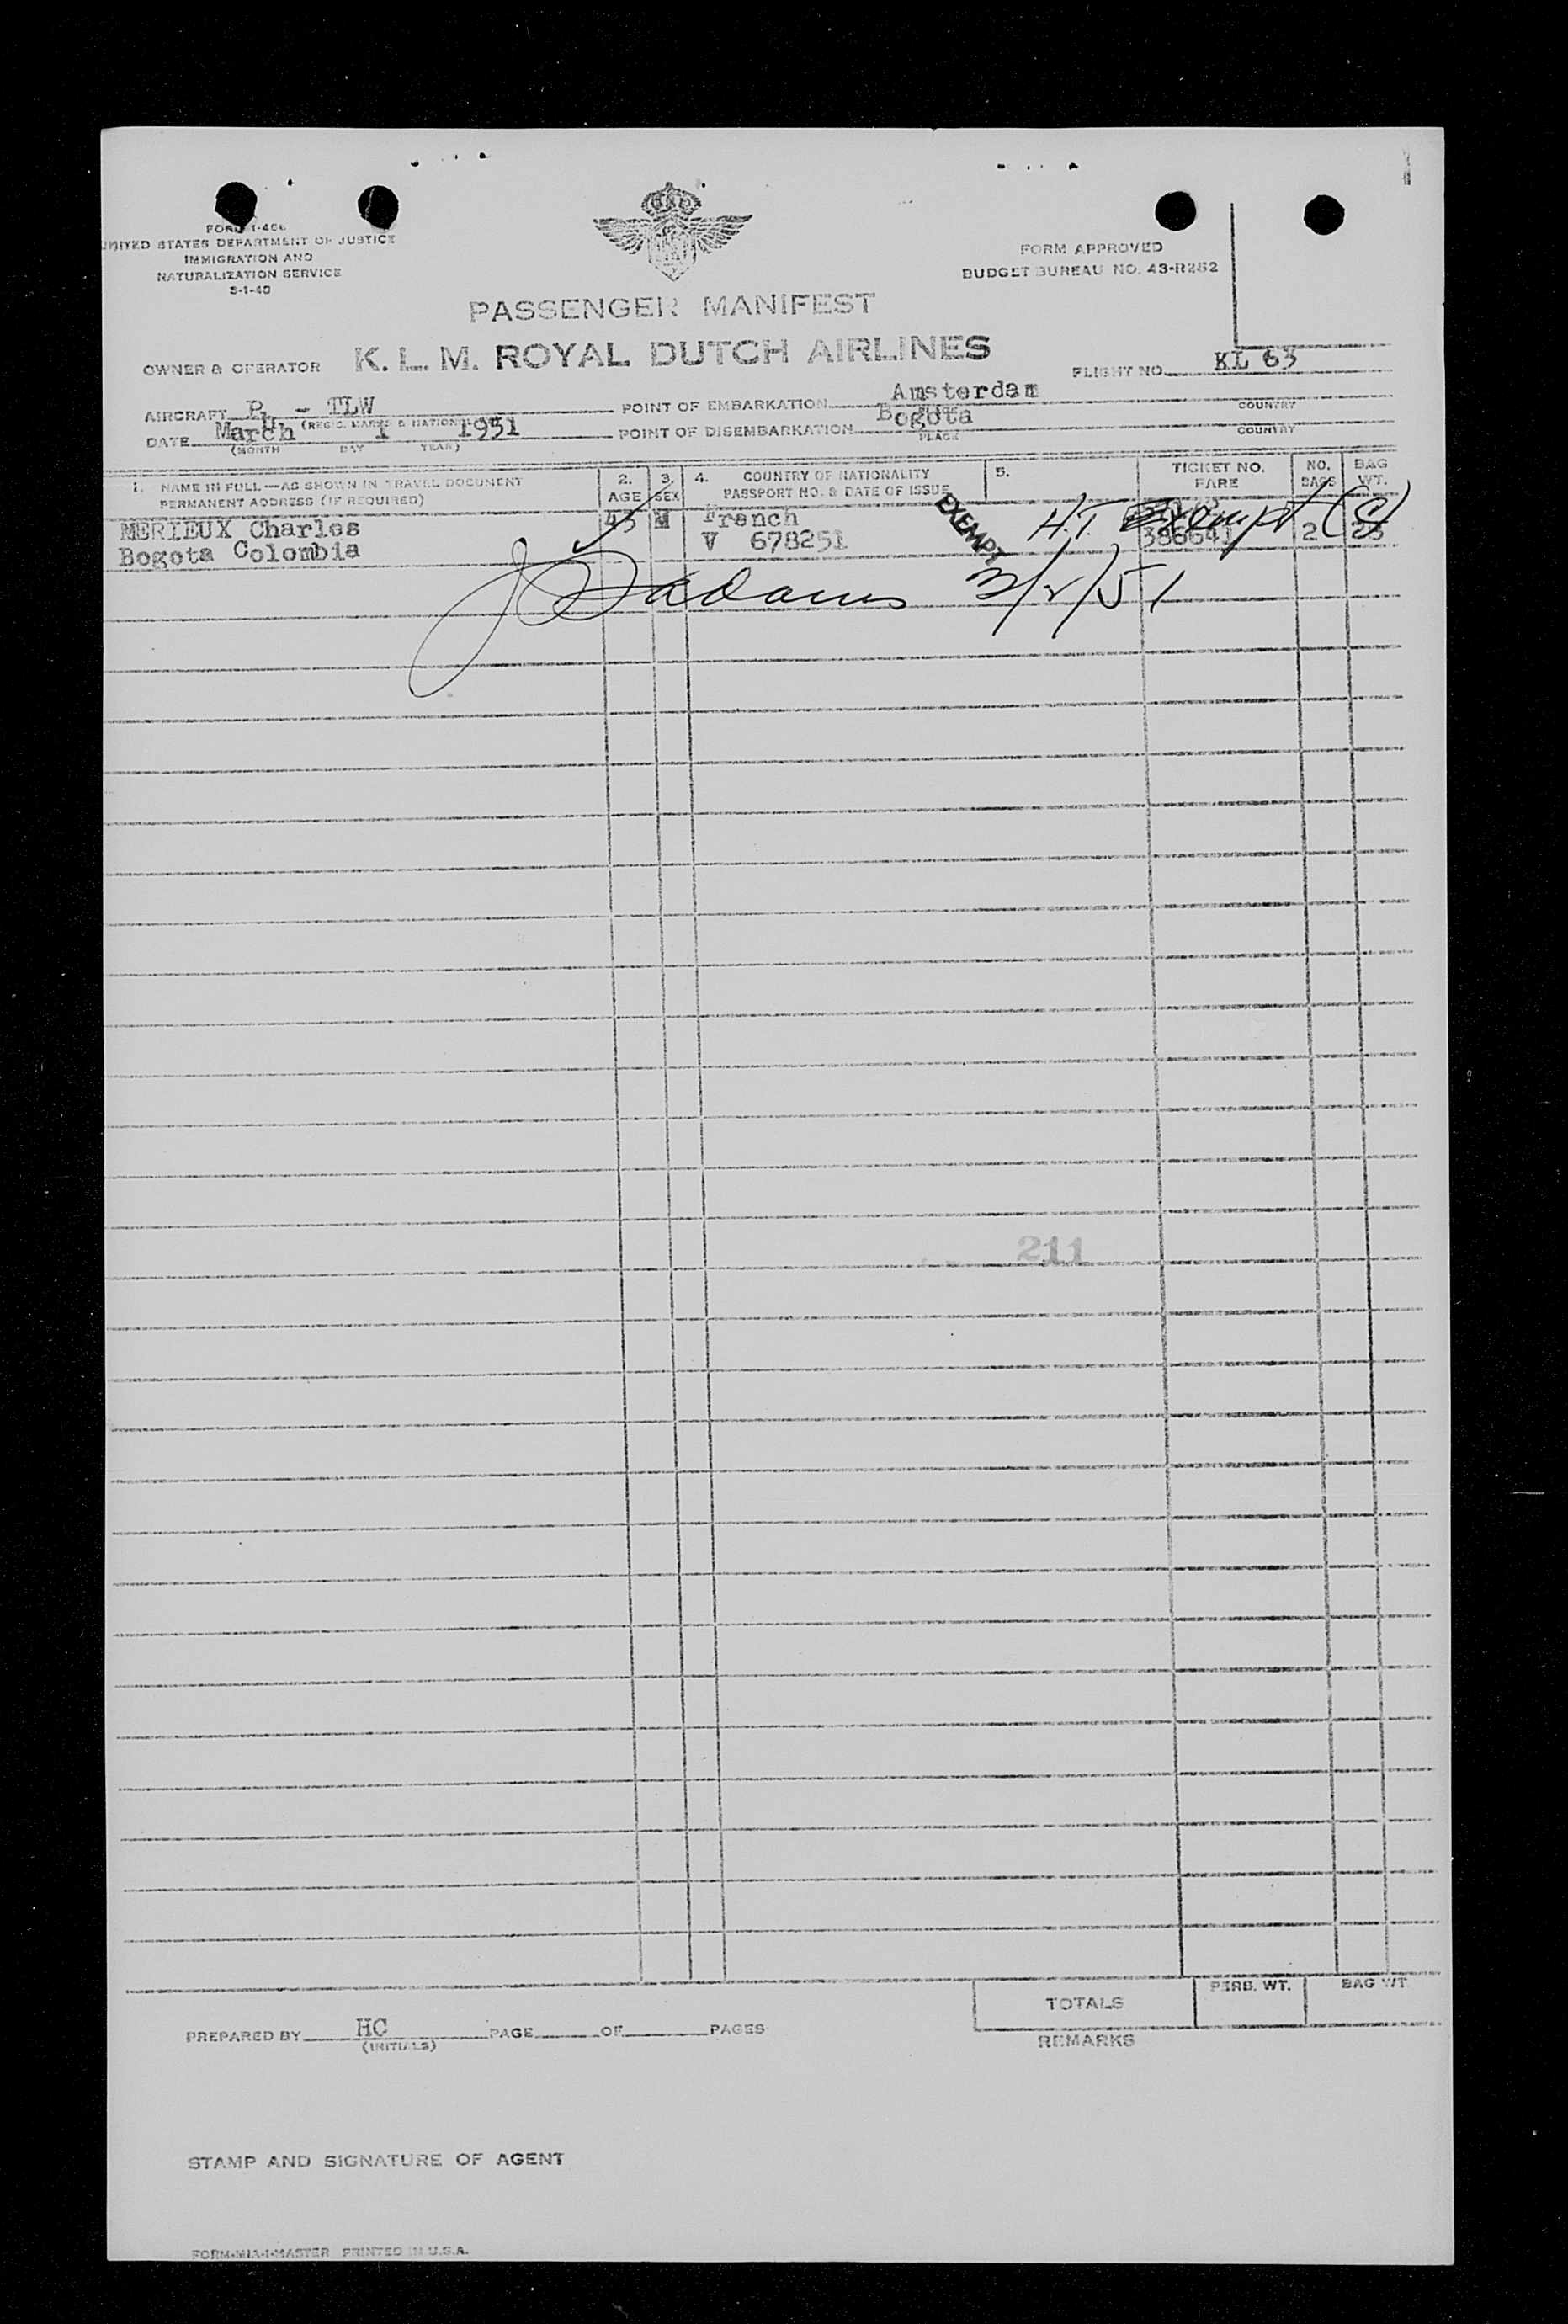 FORM I-406
UNITED STATES DEPARTMENT OF JUSTICE
IMMIGRATION AND
NATURALIZATION SERVICE
FORM APPROVED
BUDGET BUREAU NO. 43-R252
PASSENGER MANIFEST
OWNER & OPERATOR K. L. M. ROYAL DUTCH AIRLINES
FLIGHT NO. KL 63
AIRCRAFT Ph - TLW
(REG'C. MARKS & NATIONALITY)
POINT OF EMBARKATION Amsterdam
PLACE COUNTRY
DATE March 1 1951
(MONTH DAY YEAR)
POINT OF DISEMBARKATION Bogota
PLACE COUNTRY
1. NAME IN FULL—AS SHOWN IN TRAVEL DOCUMENT
PERMANENT ADDRESS (IF REQUIRED)
2. AGE
3. SEX
4. COUNTRY OF NATIONALITY
PASSPORT NO. & DATE OF ISSUE
5.
TICKET NO.
FARE
NO. BAGS
BAG WT.
MERIEUX Charles 43 M French
Bogota Colombia V 678251 386641 2
EXEMPT
H.T. Exempt (S)
Adams 3/2/51
211
TOTALS PERS. WT. BAG WT.
REMARKS
PREPARED BY HC PAGE OF PAGES
(INITIALS)
STAMP AND SIGNATURE OF AGENT
FORM-MIA-1-MASTER PRINTED IN U.S.A.